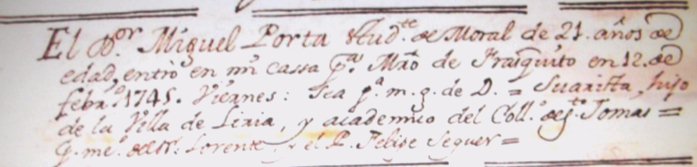 El Dor. Miguel Porta Audte de Moral de 21. años de
edad, entrò en mi cassa pa. Mro de Frasquito en 12. de
febro. 1745. Viernes: Sea pa. m. g. de D. = Suarista, hijo
de la Villa de Liria, y academico del Coll.o de Sto. Tomas =
Lorente y el P. Felipe Seguer =